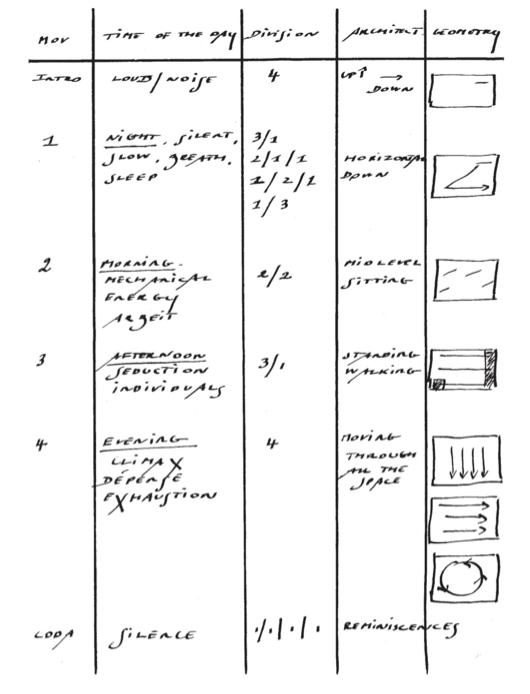 MOV TIME OF THE DAY DIVISION ARCHITECT. GEOMETRY
INTRO LOUD/NOISE 4 UP↑ →
DOWN
1 NIGHT, SILENT, 3/1
SLOW, BREATH, 2/1/1 HORIZONTAL
SLEEP 1/2/1 DOWN
1/3
2 MORNING MIDLEVEL
MECHANICAL 2/2 SITTING
ENERGY
ARBEIT
3 AFTERNOON 3/1 STANDING
SEDUCTION WALKING
INDIVIDUALS
4 EVENING 4 MOVING
CLIMAX THROUGH
DÉPENSE ALL THE
EXHAUSTION SPACE
CODA SILENCE 1/1/1/1 REMINISCENCES